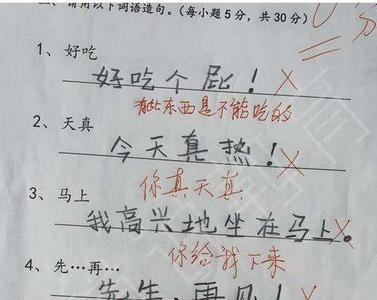 请用以下词语造句。(每小题5分，共30分)
1、好吃
好吃个屁！
有些东西是不能吃的
2、天真
今天真热！
你真天真
3、马上
我高兴地坐在马上。
你给我下来
4、先…再…
先生，再见！